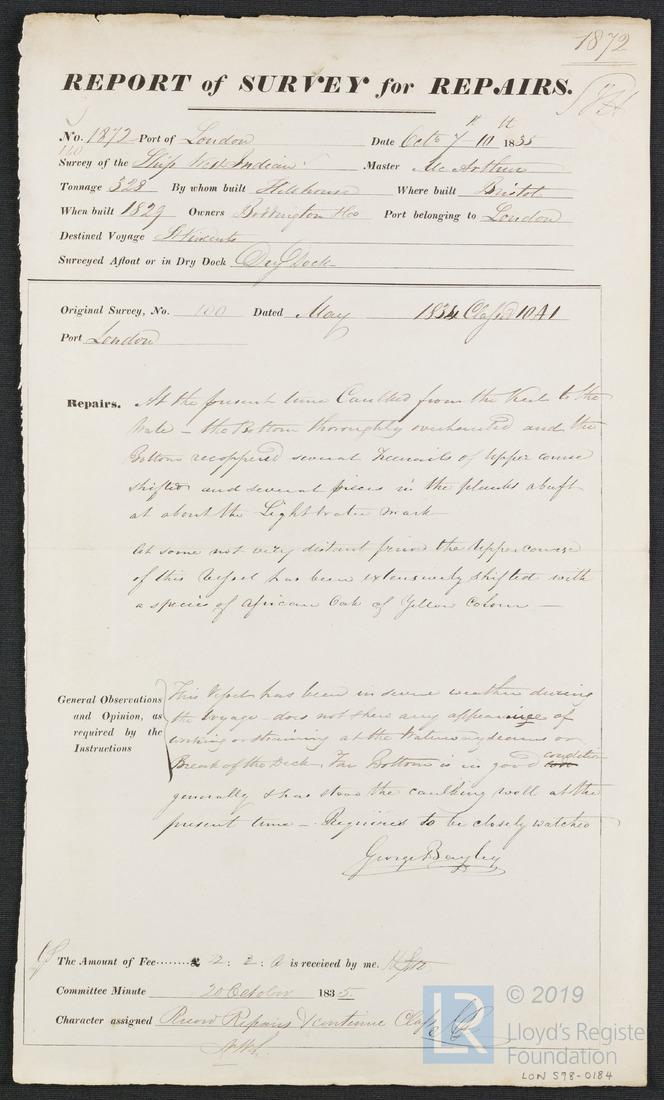 1872
REPORT of SURVEY for REPAIRS.
No. 1872 Port of London Date Octr 7th 10th 1835
Survey of the Ship West Indian Master McArthur
Tonnage 328 By whom built Hilhouse Where built Bristol
When built 1829 Owners Boddington & Co Port belonging to London
Destined Voyage St Vincents
Surveyed Afloat or in Dry Dock Dry Dock
Original Survey, No. 100 Dated May 1834 Class'd 10A1
Port London
Repairs. At the present time Caulked from the Keel to the
Wale – the Bottom thoroughly overhauled and the
Bottom recoppered several Treenails of Upper course
shifted and several pieces in the planks abaft
at about the Light water mark
At some not very distant period the Upper course
of this Vessel has been extensively shifted with
a species of African Oak of Yellow Colour –
General Observations and Opinion, as required by the Instructions
This Vessel has been in severe weather during
the Voyage – does not shew any appearance of
working or straining at the Waterway seams or
Break of the Deck. Her Bottom is in good condition
generally & has stood the caulking well at the
present time – Required to be closely watched
George Bayley
The Amount of Fee........£ 2 : 2 : 0 is received by me.
Committee Minute 20 October 1835.
Character assigned Record Repairs & continue Class
© 2019
LR
Lloyd's Register
Foundation
LON 598-0184